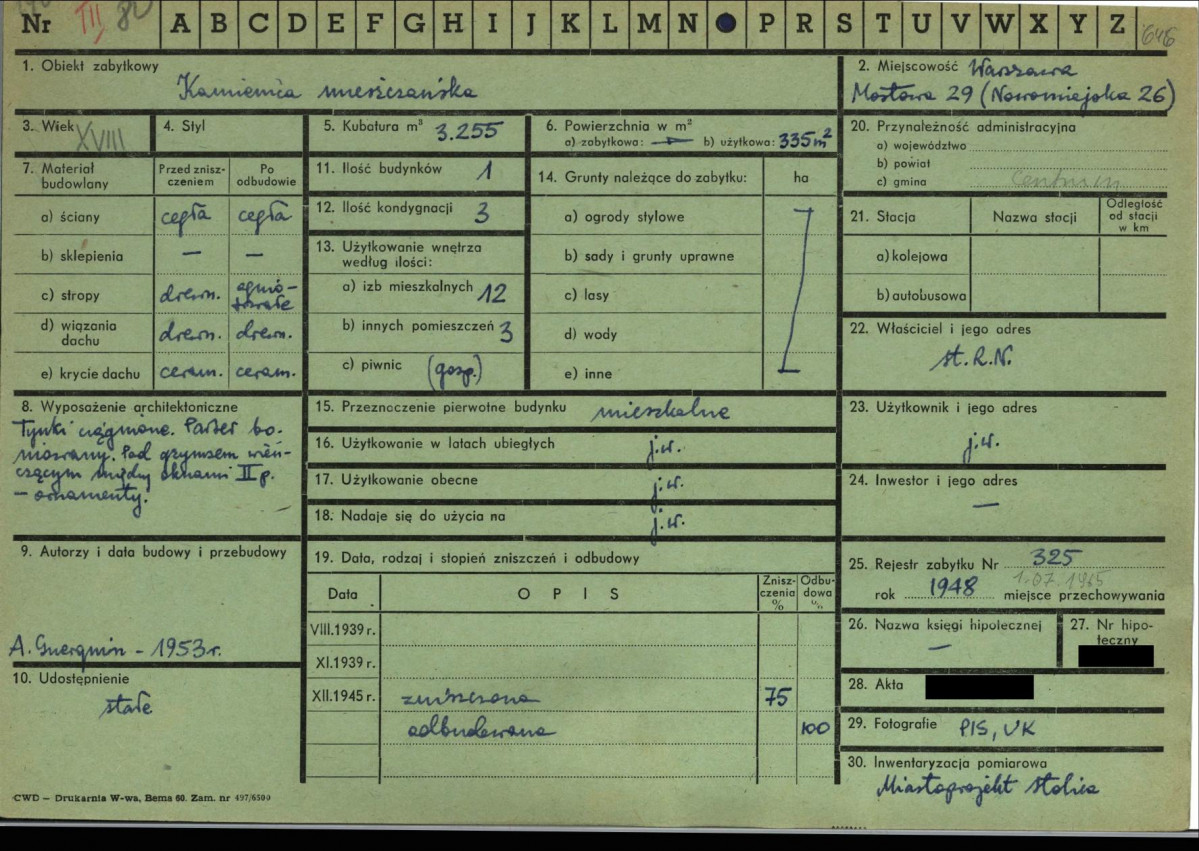 Nr III/82 A B C D E F G H I J K L M N P R S T U V W X Y Z 646
1. Obiekt zabytkowy
Kamienica mieszczańska
2. Miejscowość Warszawa
Mostowa 29 (Nowomiejska 26)
3. Wiek XVIII
4. Styl
5. Kubatura m³ 3.255
6. Powierzchnia w m²
a) zabytkowa: — b) użytkowa: 335 m²
7. Materiał budowlany
Przed znisz-
czeniem
Po
odbudowie
a) ściany cegła cegła
b) sklepienia — —
c) stropy drewn. ognio-
trwałe
d) wiązania
dachu drewn. drewn.
e) krycie dachu ceram. ceram.
8. Wyposażenie architektoniczne
Tynki ciągnione. Parter bo-
niowany. Pod gzymsem wień-
czącym między oknami II p.
— ornamenty.
9. Autorzy i data budowy i przebudowy
– 1953 r.
10. Udostępnienie
stałe
11. Ilość budynków 1
12. Ilość kondygnacji 3
13. Użytkowanie wnętrza
według ilości:
a) izb mieszkalnych 12
b) innych pomieszczeń 3
c) piwnic (gosp.)
14. Grunty należące do zabytku: ha
a) ogrody stylowe
b) sady i grunty uprawne
c) lasy
d) wody
e) inne
15. Przeznaczenie pierwotne budynku mieszkalne
16. Użytkowanie w latach ubiegłych j.w.
17. Użytkowanie obecne j.w.
18. Nadaje się do użycia na j.w.
19. Data, rodzaj i stopień zniszczeń i odbudowy
Data O P I S
Znisz-
czenia
%
Odbu-
dowa
%
VIII.1939 r.
XI.1939 r.
XII.1945 r. zniszczona 75
odbudowana 100
20. Przynależność administracyjna
a) województwo
b) powiat
c) gmina Centrum
21. Stacja Nazwa stacji
Odległość
od stacji
w km
a) kolejowa
b) autobusowa
22. Właściciel i jego adres
st. R.N.
23. Użytkownik i jego adres
j.w.
24. Inwestor i jego adres
—
25. Rejestr zabytku Nr 325
1.07.1965
rok 1948 miejsce przechowywania
26. Nazwa księgi hipotecznej
—
27. Nr hipo-
teczny
28. Akta
29. Fotografie PIS, UK
30. Inwentaryzacja pomiarowa
Miastoprojekt Stolica
CWD — Drukarnia W-wa, Bema 60. Zam. nr 497/6500